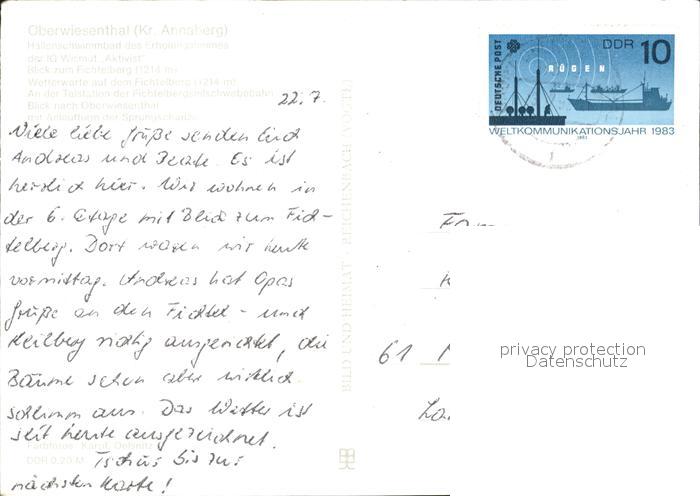 Oberwiesenthal (Kr. Annaberg)
Hallenschwimmbad des Erholungsheimes
der IG Wismut „Aktivist"
Blick zum Fichtelberg (1214 m)
Wetterwarte auf dem Fichtelberg (1214 m)
An der Talstation der Fichtelbergschwebebahn
Blick nach Oberwiesenthal
mit Anlaufturm der Sprungschanze
22.7.
Viele liebe Grüße senden Euch
Andreas und Beate. Es ist
herrlich hier. Wir wohnen in
der 6. Etage mit Blick zum Fich-
telberg. Dort waren wir heute
vormittag. Andreas hat Opas
Grüße an den Fichtel- und
Keilberg richtig ausgerichtet, die
Bäume sehen aber wirklich
schlimm aus. Das Wetter ist
seit heute ausgezeichnet.
Tschüs bis zur
nächsten Karte!
DDR 0,20 M
BILD UND HEIMAT · REICHENBACH (VOGTL)
DEUTSCHE POST
DDR 10
RÜGEN
WELTKOMMUNIKATIONSJAHR 1983
61
privacy protection
Datenschutz